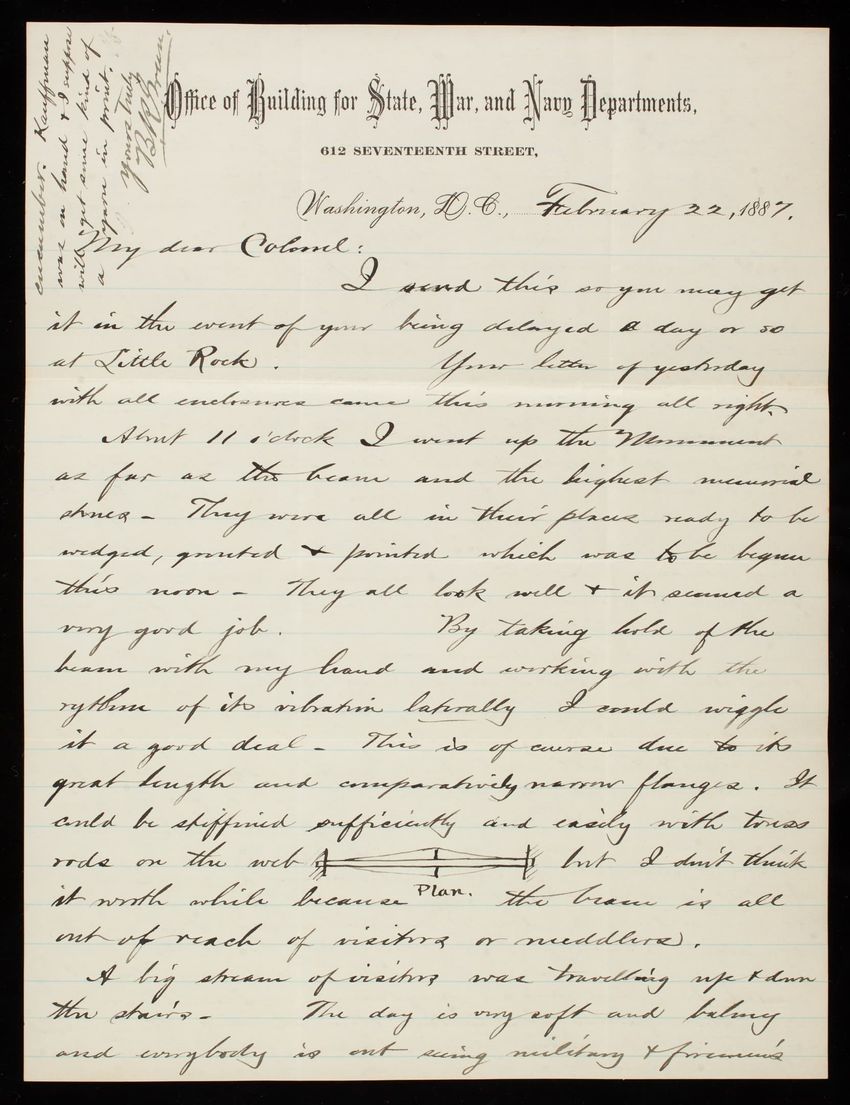 Office of Building for State, War, and Navy Departments,
612 SEVENTEENTH STREET,
Washington, D.C., February 22, 1887.
My dear Colonel:
I send this so you may get
it in the event of your being delayed a day or so
at Little Rock. Your letter of yesterday
with all enclosures came this morning all right.
About 11 o'clock I went up the Monument
as far as the beam and the highest memorial
stones – They were all in their places ready to be
wedged, grouted & pointed which was to be begun
this noon – They all look well & it seemed a
very good job. By taking hold of the
beam with my hand and working with the
rythm of its vibration laterally I could wiggle
it a good deal – This is of course due to its
great length and comparatively narrow flanges. It
could be stiffined sufficiently and easily with truss
rods on the web but I don't think
Plan.
it worth while because the beam is all
out of reach of visitors or meddlers.
A big stream of visitors was travelling up & down
the stairs – The day is very soft and balmy
and everybody is out seeing military & firemen's
encumber. Kauffman
was on hand & I suppose
will get some kind of
a yarn in print.
Yours truly
B R Green.